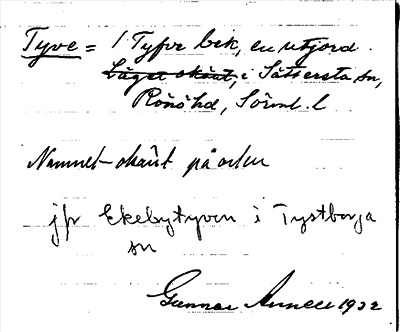 Tyve = 1 Tyfve bek, en utjord
Läget okänt, i Sättersta sn,
Rönö hd, Söml. l
Namnet okänt på orten
jfr Ekebytyven i Tystberga
sn
Gunnar Annell 1932